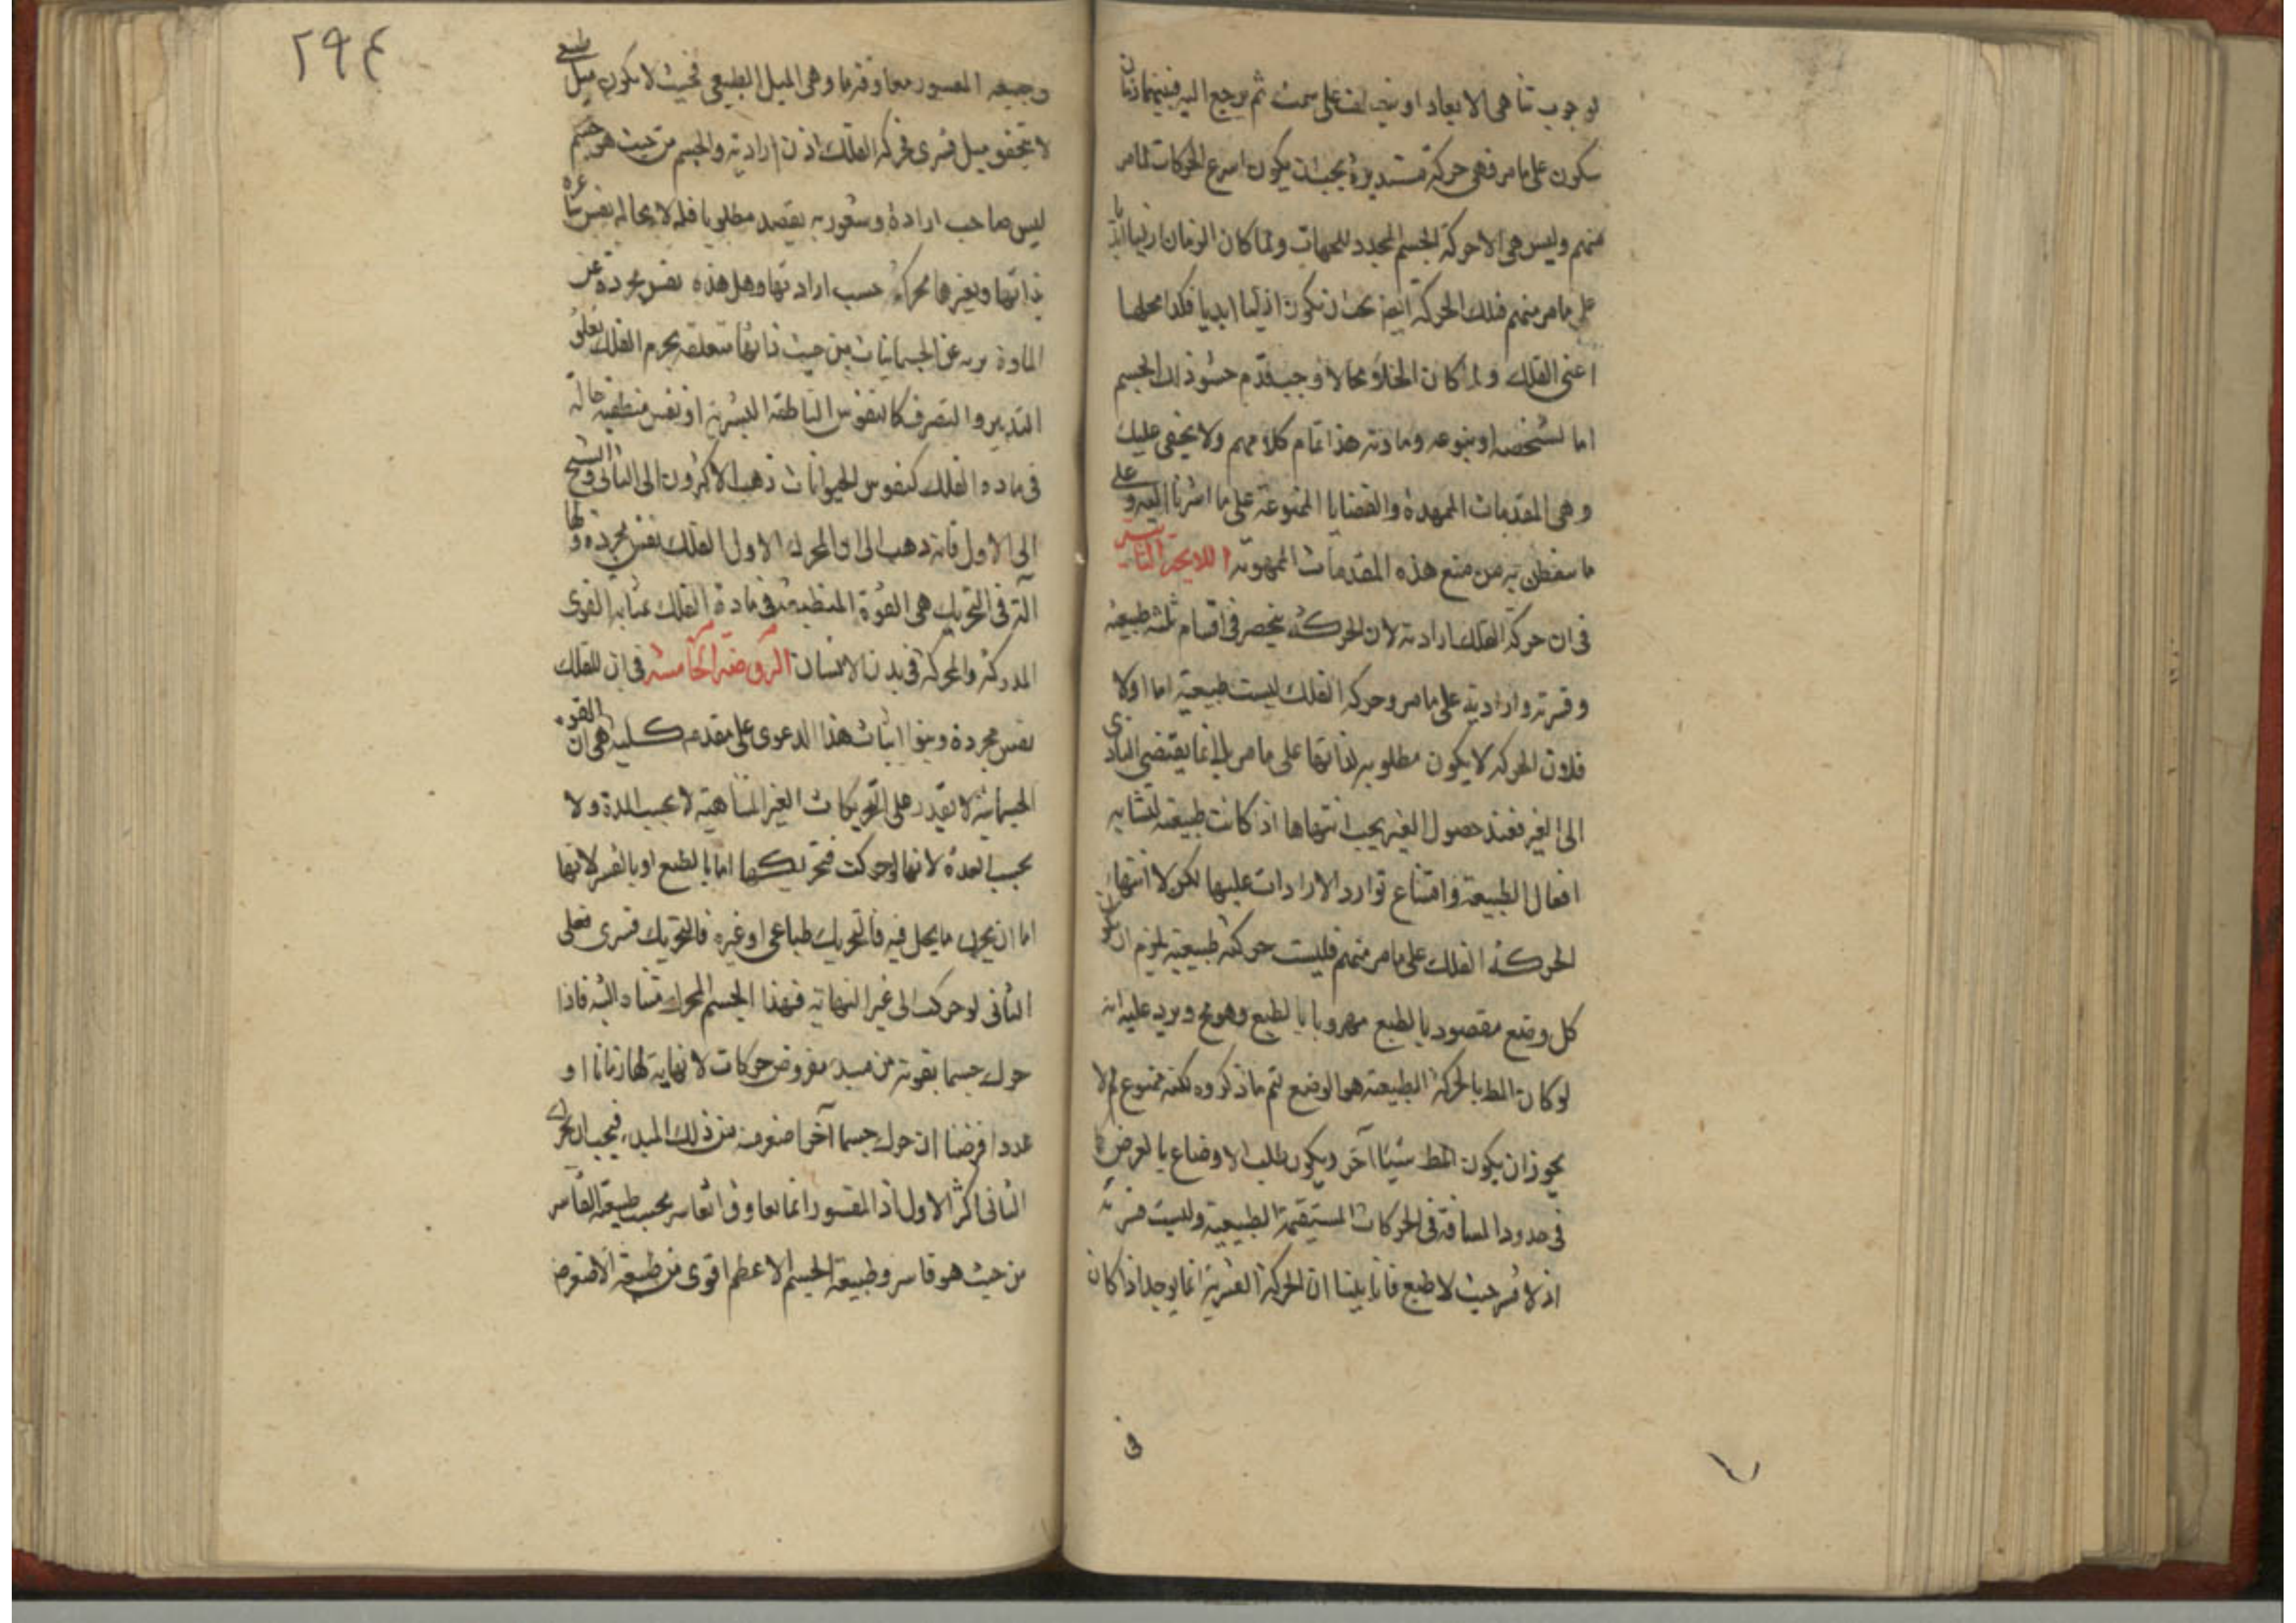 لوجوب تناهي الابعاد او ينعطف على سمت ثم يرجع اليه فبينهما زمان
سكون على ما مر فهي حركة مستديرة يجب ان يكون اسرع الحركات لما مر
منهم وليس هي الا حركة الجسم المحدد للجهات ولما كان الزمان ازليا ابديا
على ما مر منهم فتلك الحركة ايضا يجب ان يكون ازليا ابديا فكذا محلها
اعنى الفلك ولما كان الخلاء محالا وجب قدم حشو ذلك الجسم
اما لشخصه او بنوعه ومادته هذا تمام كلامهم ولا يخفى عليك
وهي المقدمات الممهدة والقضايا الممنوعة على ما اشرنا اليه وعلى
ما ستطن به من منع هذه المقدمات المموهة اللايحة
فى ان حركة الفلك ارادية لان الحركة ينحصر فى اقسام ثلثة طبيعية
وقسرية وارادية على ما مر وحركة الفلك ليست طبيعية اما اولا
فلان الحركة لا يكون مطلوبة لذاتها على ما مر بل انما يقتضى التادى
الى الغير فعند حصول الغير يجب انتهاها اذا كانت طبيعته لتشابه
افعال الطبيعة وامتناع توارد الارادات عليها لكن لا انتهاء
الحركة الفلك على ما مر منهم فليست حركته طبيعية يلزم ان يكون
كل وضع مقصود بالطبع مهروبا بالطبع وهو مح ويرد عليه انه
لو كان المط بالحركة الطبيعة هو الوضع لتم ما ذكروه لكنه ممنوع لم لا
يجوز ان يكون المط شيئا آخر ويكون طلب الاوضاع بالعرض
فى حدود المسافة فى الحركات المستقيمة الطبيعية وليست قسرية
اذ لا قسر حيث لا طبع فانا بينا ان الحركة القسرية انما يوجد اذا كان
فى
٢٩٤
وجيعه المقسور معاوقة ما وهى الميل الطبيعى فحيث لا يكون ميل طبيعى
لا يتحقق ميل قسرى فحركة الفلك اذن ارادية والجسم من حيث هو جسم
ليس صاحب ارادة وشعور به يقصد مطلوبا فله لا محالة نفس شاعرة
بذاتها وبغيرها محركة حسب ارادتها وهل هذه نفس مجردة عن
المادة برية عن الجسمانيات من حيث ذاتها متعلقة بجرم الفلك تعلق
التدبير والتصرف كالنفوس الناطقة البشرية او نفس منطبعة حالة
فى مادة الفلك كنفوس الحيوانات ذهب الاكثرون الى الثانى والشيخ
الى الاول فانه ذهب الى ان المحرك الاول الفلك نفس مجردة ولها
آلة فى التحريك هى القوة المنطبعة فى مادة الفلك بمثابة القوى
المدركة والمحركة فى بدن الانسان الروضة الخامسة فى ان للفلك
نفس مجردة وبنوا اثبات هذا الدعوى على مقدمه كلية هى ان القوة
الجسمانية لا تقدر على التحريكات الغير المتناهية لا بحسب المدة ولا
بحسب العدة لانها لو حركت فتحريكها اما بالطبع او بالقسر لانها
اما ان يحرك ما يحل فيه فالتحريك طباعى او غيره فالتحريك قسرى فعلى
الثانى لو حركت الى غير النهاية فهذا الجسم المحرك متناه البته فاذا
حرك جسما بقوته من مبدء مفروض حركات لا نهاية لها زمانا او
عددا فرضنا ان حرك جسما آخر اصغر منه من ذلك المبدء فيجب ان يحرك
الثانى اكثر الاول اذ المقسور انما يعاوق القاسر بحسب طبيعة القاسر
من حيث هو قاسر وطبيعة الجسم الاعظم اقوى من طبيعة الاصغر